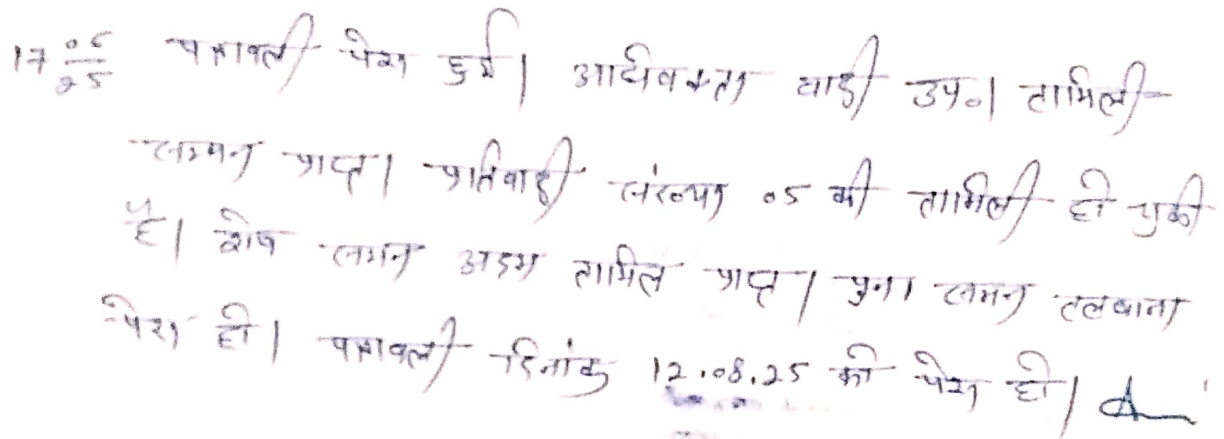 17 05/25 पत्रावली पेश हुई। अधिवक्ता वादी उप०। तामिली
समन प्राप्त। प्रतिवादी संख्या 05 की तामिली हो चुकी
है। शेष समन अदम तामिल प्राप्त। पुनः समन तलवाना
पेश हो। पत्रावली दिनांक 12.08.25 को पेश हो।